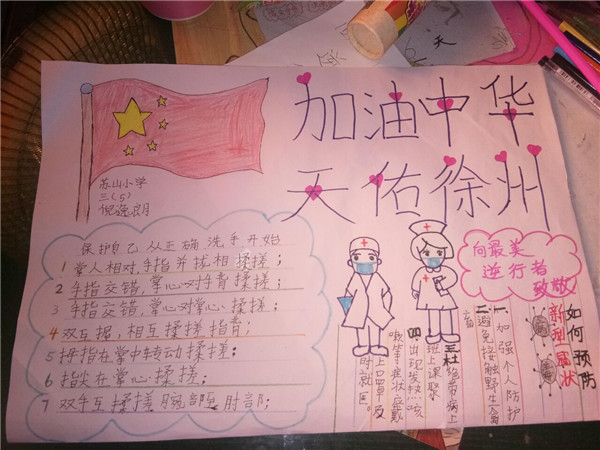 加油中华
天佑徐州
苏山小学
三(5)
倪逸启月
保护自己从正确洗手开始
1 掌人相对,手指并拢相揉搓;
2 手指交错,掌心对手背揉搓;
3 手指交错,掌心对掌心揉搓;
4 双互握,相互揉搓指背;
5 拇指在掌中转动揉搓;
6 指尖在掌心揉搓;
7 双手互揉搓腕部至肘部;
向最美
逆行者
致敬
如何预防
新型冠状
一、加强个人防护
二、避免接触野生禽
畜
三、杜绝带病上
班上课聚
四、出现发热咳
嗽等症状应戴
上口罩及
时就医。
天